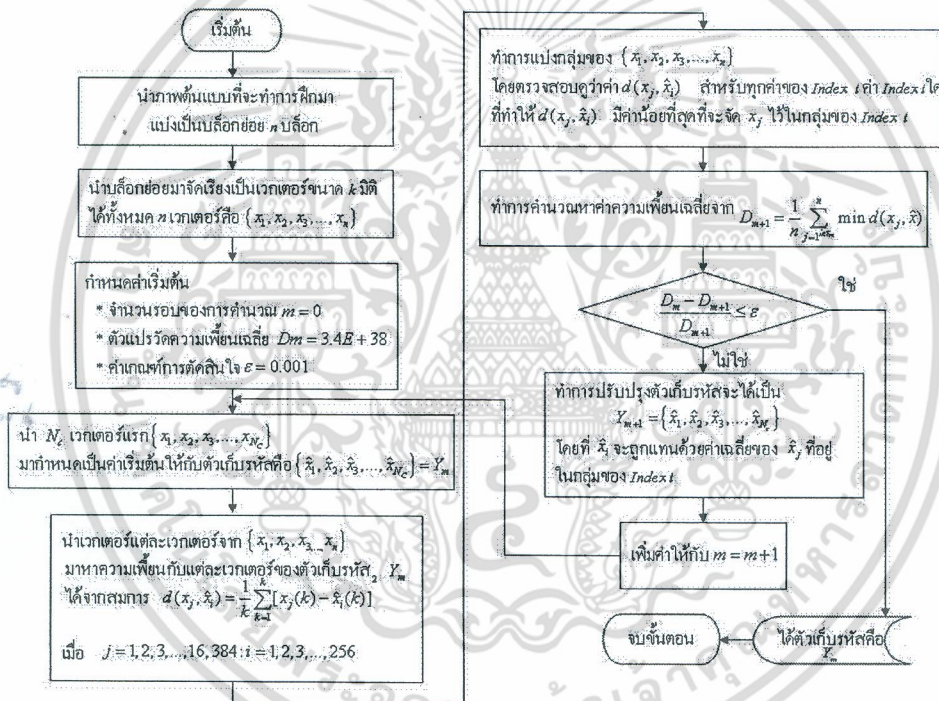 เริ่มต้น
นำภาพต้นแบบที่จะทำการฝึกมา
แบ่งเป็นบล็อกย่อย n บล็อก
นำบล็อกย่อยมาจัดเรียงเป็นเวกเตอร์ขนาด k มิติ
ได้ทั้งหมด n เวกเตอร์คือ {x₁, x₂, x₃, ..., xₙ}
กำหนดค่าเริ่มต้น
* จำนวนรอบของการคำนวณ m = 0
* ตัวแปรวัดความเพี้ยนเฉลี่ย Dm = 3.4E + 38
* ค่าเกณฑ์การตัดสินใจ ε = 0.001
นำ N_c เวกเตอร์แรก {x₁, x₂, x₃, ..., x_{N_c}}
มากำหนดเป็นค่าเริ่มต้นให้กับตัวเก็บรหัสคือ {x̂₁, x̂₂, x̂₃, ..., x̂_{N_c}} = Y_m
นำเวกเตอร์แต่ละเวกเตอร์จาก {x₁, x₂, x₃, ... xₙ}
มาหาความเพี้ยนกับแต่ละเวกเตอร์ของตัวเก็บรหัส Y_m
ได้จากสมการ d(x_j, x̂_i) = 1/k ∑_{k=1}^{k} [x_j(k) − x̂_i(k)]²
เมื่อ j = 1,2,3,...,16,384 : i = 1,2,3,...,256
ทำการแบ่งกลุ่มของ {x₁, x₂, x₃, ..., xₙ}
โดยตรวจสอบดูว่าค่า d(x_j, x̂_i) สำหรับทุกค่าของ Index i ค่า Index i ใด
ที่ทำให้ d(x_j, x̂_i) มีค่าน้อยที่สุดที่จะจัด x_j ไว้ในกลุ่มของ Index i
ทำการคำนวณหาค่าความเพี้ยนเฉลี่ยจาก D_{m+1} = 1/n ∑_{j=1}^{n} min d(x_j, x̂)
(D_m − D_{m+1}) / D_{m+1} ≤ ε
ใช่
ไม่ใช่
ทำการปรับปรุงตัวเก็บรหัสจะได้เป็น
Y_{m+1} = {x̂₁, x̂₂, x̂₃, ..., x̂_{N_c}}
โดยที่ x̂_i จะถูกแทนด้วยค่าเฉลี่ยของ x̂_j ที่อยู่
ในกลุ่มของ Index i
เพิ่มค่าให้กับ m = m + 1
จบขั้นตอน
ได้ตัวเก็บรหัสคือ
Y_m